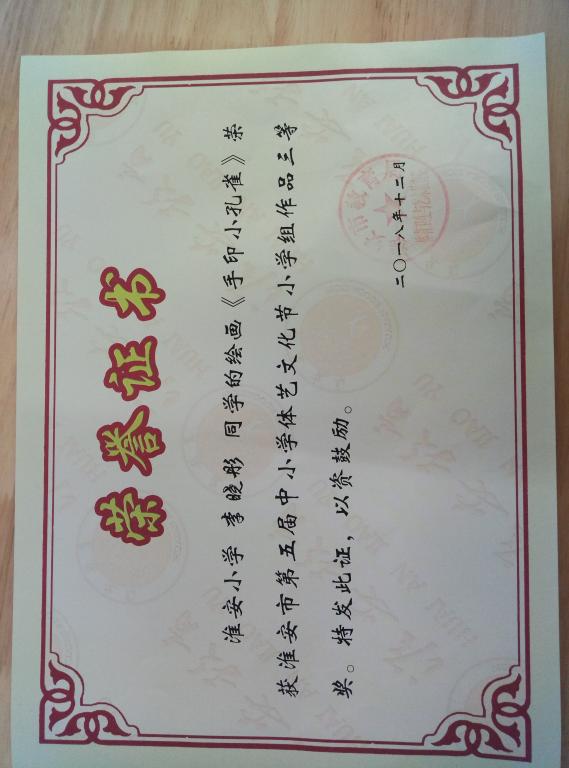 荣誉证书
淮安小学 李晓彤 同学的绘画《手印小孔雀》荣
获淮安市第五届中小学体艺文化节小学组作品三等
奖。特发此证，以资鼓励。
二〇一八年十二月